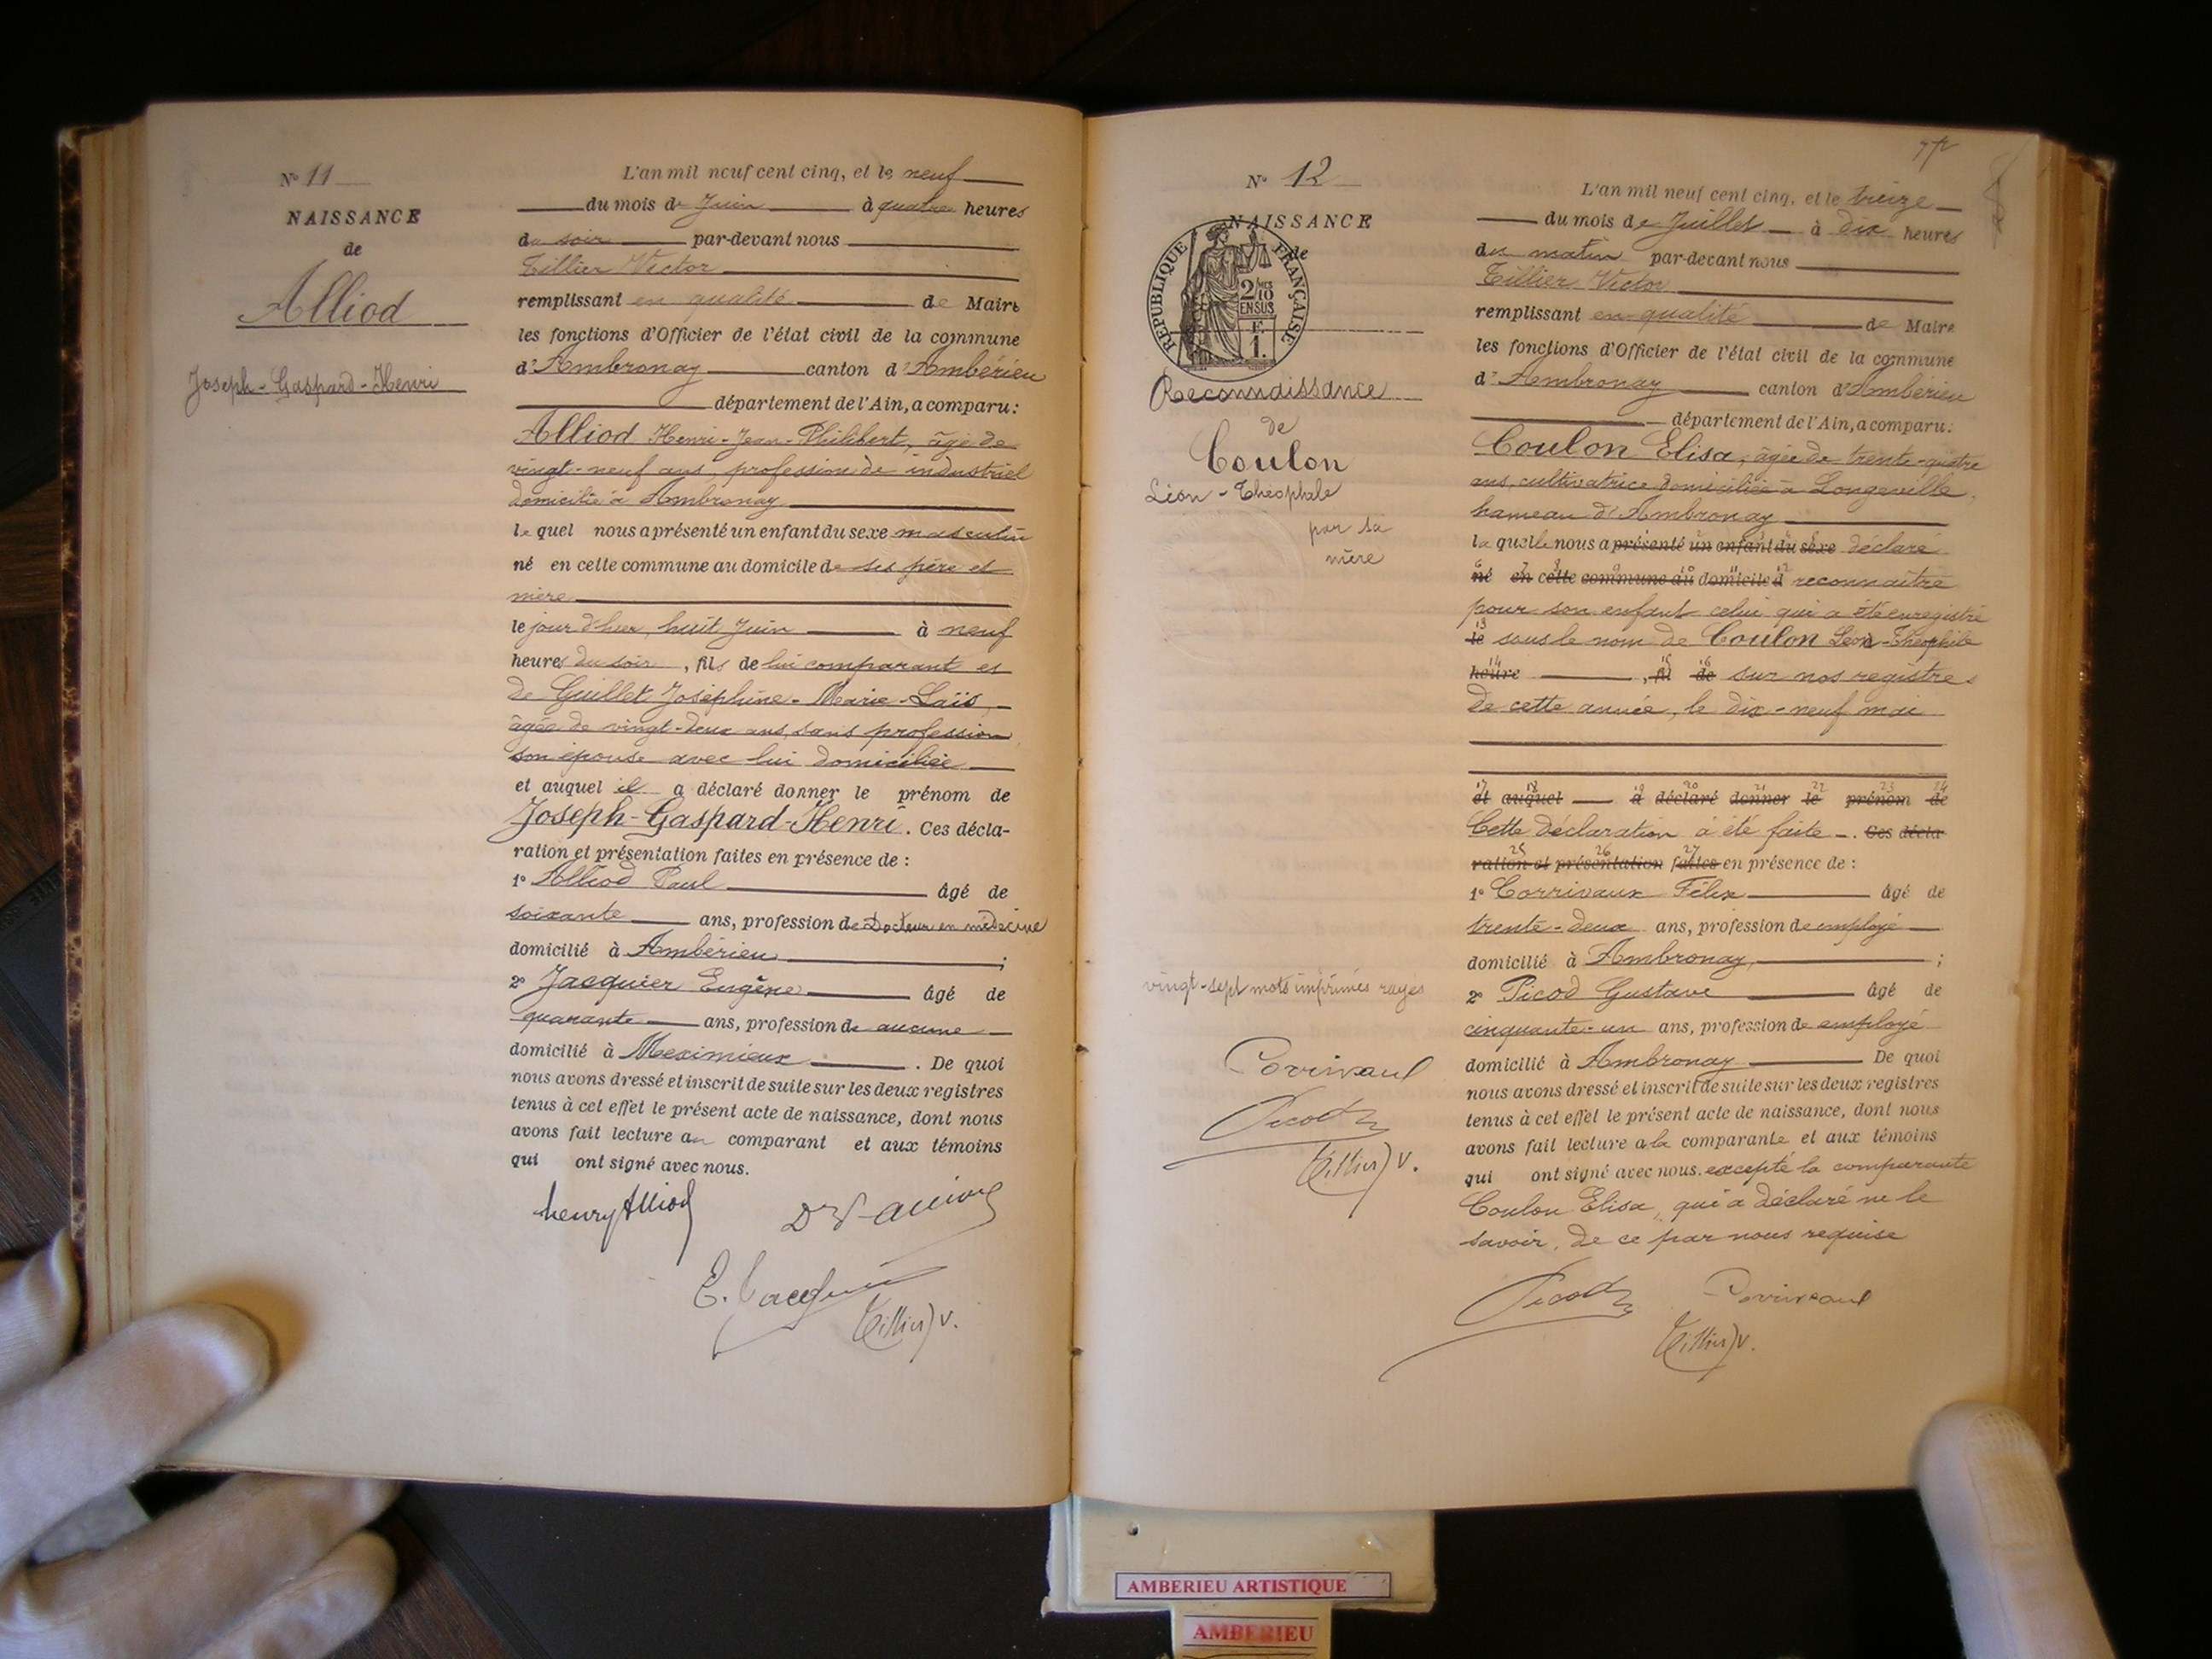 N° 11
NAISSANCE
de
Alliod
Joseph-Gaspard-Henri
L'an mil neuf cent cinq, et le neuf
du mois de Juin à quatre heures
du soir par-devant nous
Tillier Victor
remplissant en qualité de Maire
les fonctions d'Officier de l'état civil de la commune
d'Ambronay canton d'Ambérieu
département de l'Ain, a comparu:
Alliod Henri-Jean-Philibert, âgé de
vingt-neuf ans, profession de industriel
domicilié à Ambronay
le quel nous a présenté un enfant du sexe masculin
né en cette commune au domicile de ses père et
mère
le jour d'hier, huit Juin à neuf
heures du soir, fils de lui comparant et
de Guillet Joséphine-Marie-Laïs,
âgée de vingt-deux ans, sans profession
son épouse avec lui domiciliée
et auquel il a déclaré donner le prénom de
Joseph-Gaspard-Henri. Ces décla-
ration et présentation faites en présence de :
1° Alliod Paul âgé de
soixante ans, profession de Docteur en médecine
domicilié à Ambérieu ;
2° Jacquier Eugène âgé de
quarante ans, profession de aucune
domicilié à Meximieux. De quoi
nous avons dressé et inscrit de suite sur les deux registres
tenus à cet effet le présent acte de naissance, dont nous
avons fait lecture au comparant et aux témoins
qui ont signé avec nous.
henry Alliod
E. Jacquier
Tillier V.
N° 12
NAISSANCE
de
REPUBLIQUE FRANÇAISE
2/10 MES
EN SUS
F.
1.
Reconnaissance
de
Coulon
Léon-Théophile
par sa
mère
L'an mil neuf cent cinq, et le treize
du mois de Juillet à dix heures
du matin par-devant nous
Tillier Victor
remplissant en qualité de Maire
les fonctions d'Officier de l'état civil de la commune
d'Ambronay canton d'Ambérieu
département de l'Ain, a comparu:
Coulon Elisa, âgée de trente-quatre
ans, cultivatrice domiciliée à Longeville
hameau d'Ambronay
la quelle nous a présenté un enfant du sexe déclaré
né en cette commune au domicile d reconnaître
pour son enfant celui qui a été enregistré
le sous le nom de Coulon Léon-Théophile
heure , fil de sur nos registres
de cette année, le dix-neuf mai
et auquel a déclaré donner le prénom de
Cette déclaration a été faite. Ces décla-
ration et présentation faites en présence de :
1° Corrivaux Félix âgé de
trente-deux ans, profession de employé
domicilié à Ambronay ;
2° Picod Gustave âgé de
cinquante-un ans, profession de employé
domicilié à Ambronay De quoi
nous avons dressé et inscrit de suite sur les deux registres
tenus à cet effet le présent acte de naissance, dont nous
avons fait lecture a la comparante et aux témoins
qui ont signé avec nous. excepté la comparante
Coulon Elisa, qui a déclaré ne le
savoir, de ce par nous requise
vingt-sept mots imprimés rayés
Corrivaux
Picod
Tillier V.
Picod Corrivaux
Tillier V.
AMBERIEU ARTISTIQUE
AMBERIEU